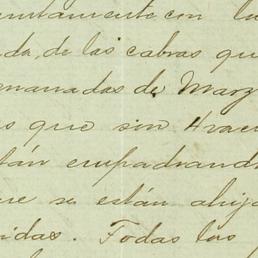 untamente con la
da, de las cabras que
emanadas de Marz
s que sin hacer
tán empadronad
ue se están ahij
idas. Todas las